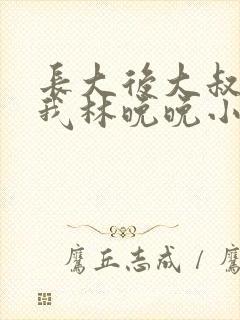 長大後大叔
我林晚晚小
鷹丘志成 / 鷹